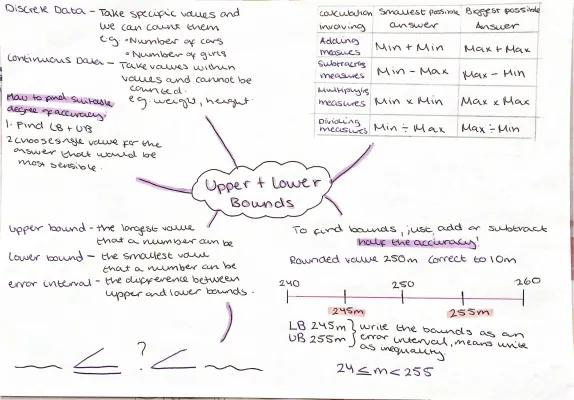 Discrete Data - Take specific values and
we can count them
e.g. - Number of cars
- Number of girls
Continuous Data - Take values within
values and cannot be
counted.
e.g. weight, height.
How to find suitable
degree of accuracy.
1. Find LB + UB
2. Choose single value for the
answer that would be
most sensible.
Calculation involving
Smallest possible answer
Biggest possible Answer
Adding measures
Min + Min
Max + Max
Subtracting measures
Min - Max
Max - Min
Multiplying measures
Min x Min
Max x Max
Dividing measures
Min ÷ Max
Max ÷ Min
Upper + Lower
Bounds
Upper bound - the largest value
that a number can be
Lower bound - the smallest value
that a number can be
error interval - the difference between
upper and lower bounds.
≤ ? <
To find bounds, just add or subtract
half the accuracy!
Rounded value 250m correct to 10m
240 250 260
245m 255m
LB 245m } write the bounds as an
UB 255m } error interval, means write
as inequality
24 ≤ m < 255